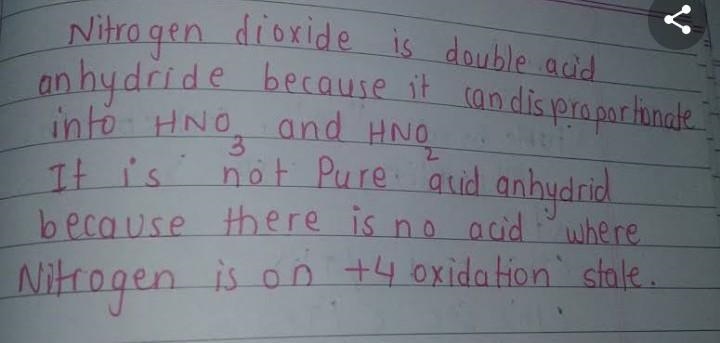 Nitrogen dioxide is double acid
anhydride because it can disproportionate
into HNO3 and HNO2
It is not Pure acid anhydrid
because there is no acid where
Nitrogen is on +4 oxidation state.